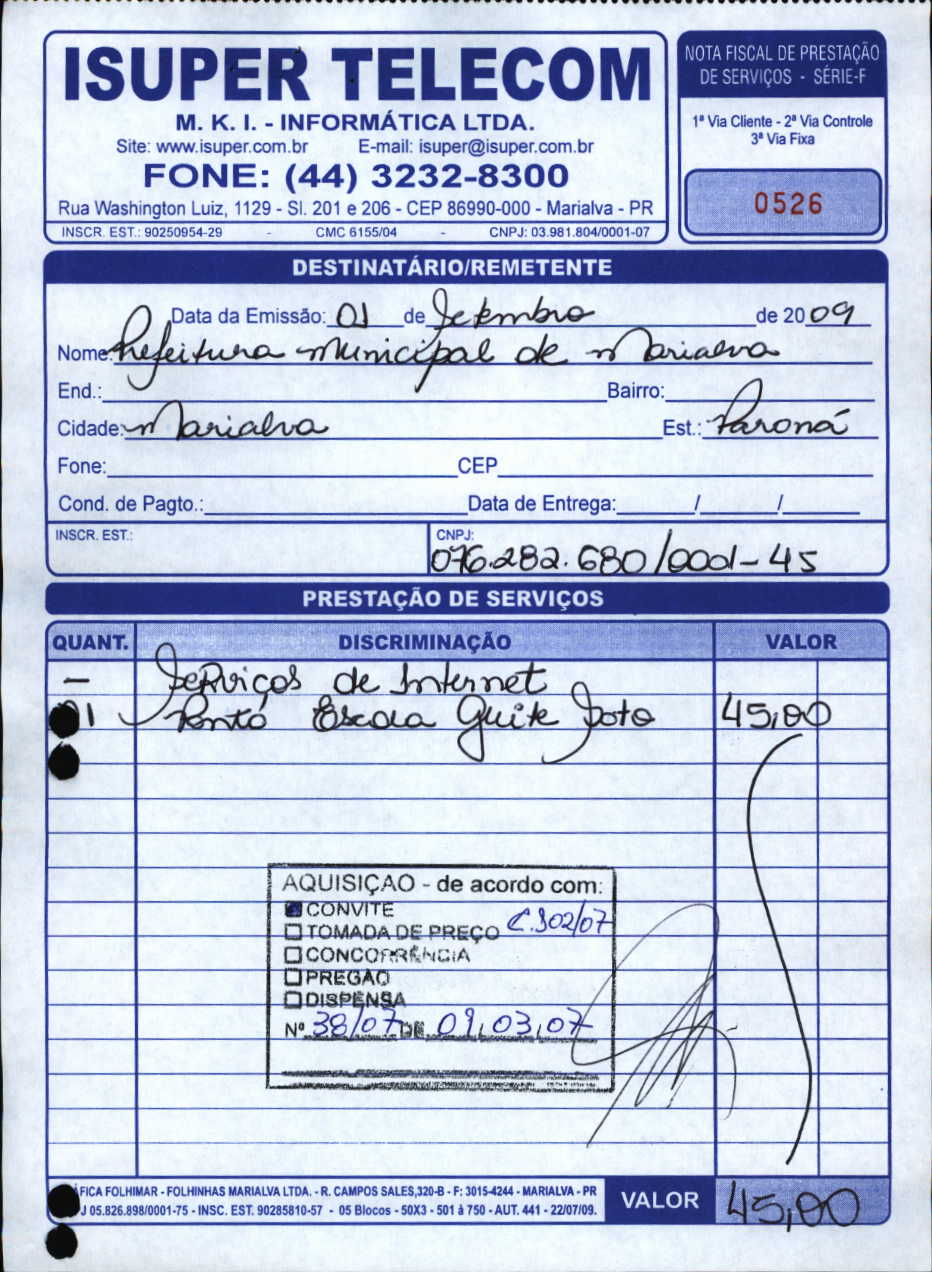 ISUPER TELECOM
M. K. I. - INFORMÁTICA LTDA.
Site: www.isuper.com.br E-mail: isuper@isuper.com.br
FONE: (44) 3232-8300
Rua Washington Luiz, 1129 - Sl. 201 e 206 - CEP 86990-000 - Marialva - PR
INSCR. EST.: 90250954-29 - CMC 6155/04 - CNPJ: 03.981.804/0001-07
NOTA FISCAL DE PRESTAÇÃO
DE SERVIÇOS - SÉRIE-F
1ª Via Cliente - 2ª Via Controle
3ª Via Fixa
0526
DESTINATÁRIO/REMETENTE
Data da Emissão: 01 de Setembro de 2009
Nome: Prefeitura Municipal de Marialva
End.: Bairro:
Cidade: Marialva Est.: Paraná
Fone: CEP
Cond. de Pagto.: Data de Entrega: / /
INSCR. EST.: CNPJ:
076.282.680/0001-45
PRESTAÇÃO DE SERVIÇOS
QUANT. DISCRIMINAÇÃO VALOR
- Serviços de Internet
01 Ponto Escola 45,00
AQUISIÇAO - de acordo com:
CONVITE
TOMADA DE PREÇO C.302/07
CONCORRÊNCIA
PREGAO
DISPENSA
Nº 38/07 DE 09,03,07
FICA FOLHIMAR - FOLHINHAS MARIALVA LTDA. - R. CAMPOS SALES,320-B - F: 3015-4244 - MARIALVA - PR
J 05.826.898/0001-75 - INSC. EST. 90285810-57 - 05 Blocos - 50X3 - 501 à 750 - AUT. 441 - 22/07/09.
VALOR 45,00